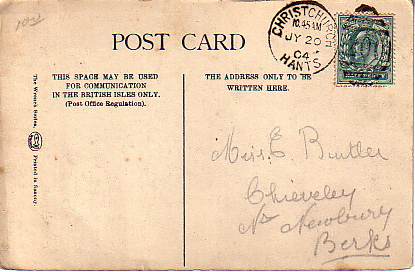 POST CARD
CHRISTCHURCH
10.45AM
JY 20
04
HANTS
THIS SPACE MAY BE USED
FOR COMMUNICATION
IN THE BRITISH ISLES ONLY.
(Post Office Regulation).
THE ADDRESS ONLY TO BE
WRITTEN HERE.
The Wrench Series,
Printed in Saxony.
Miss E Buttler
Chieveley
Nr Newbury
Berks